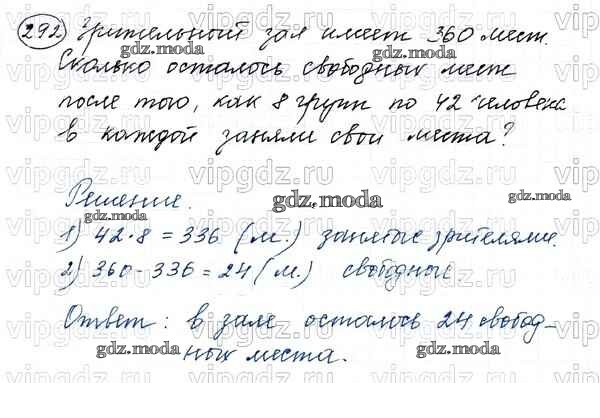 292 Зрительный зал имеет 360 мест.
Сколько осталось свободных мест
после того, как 8 групп по 42 человека
в каждой заняли свои места?
Решение.
1) 42·8 = 336 (м.) занятые зрителями.
2) 360 - 336 = 24 (м.) свободные.
Ответ: в зале осталось 24 свобод-
ных места.